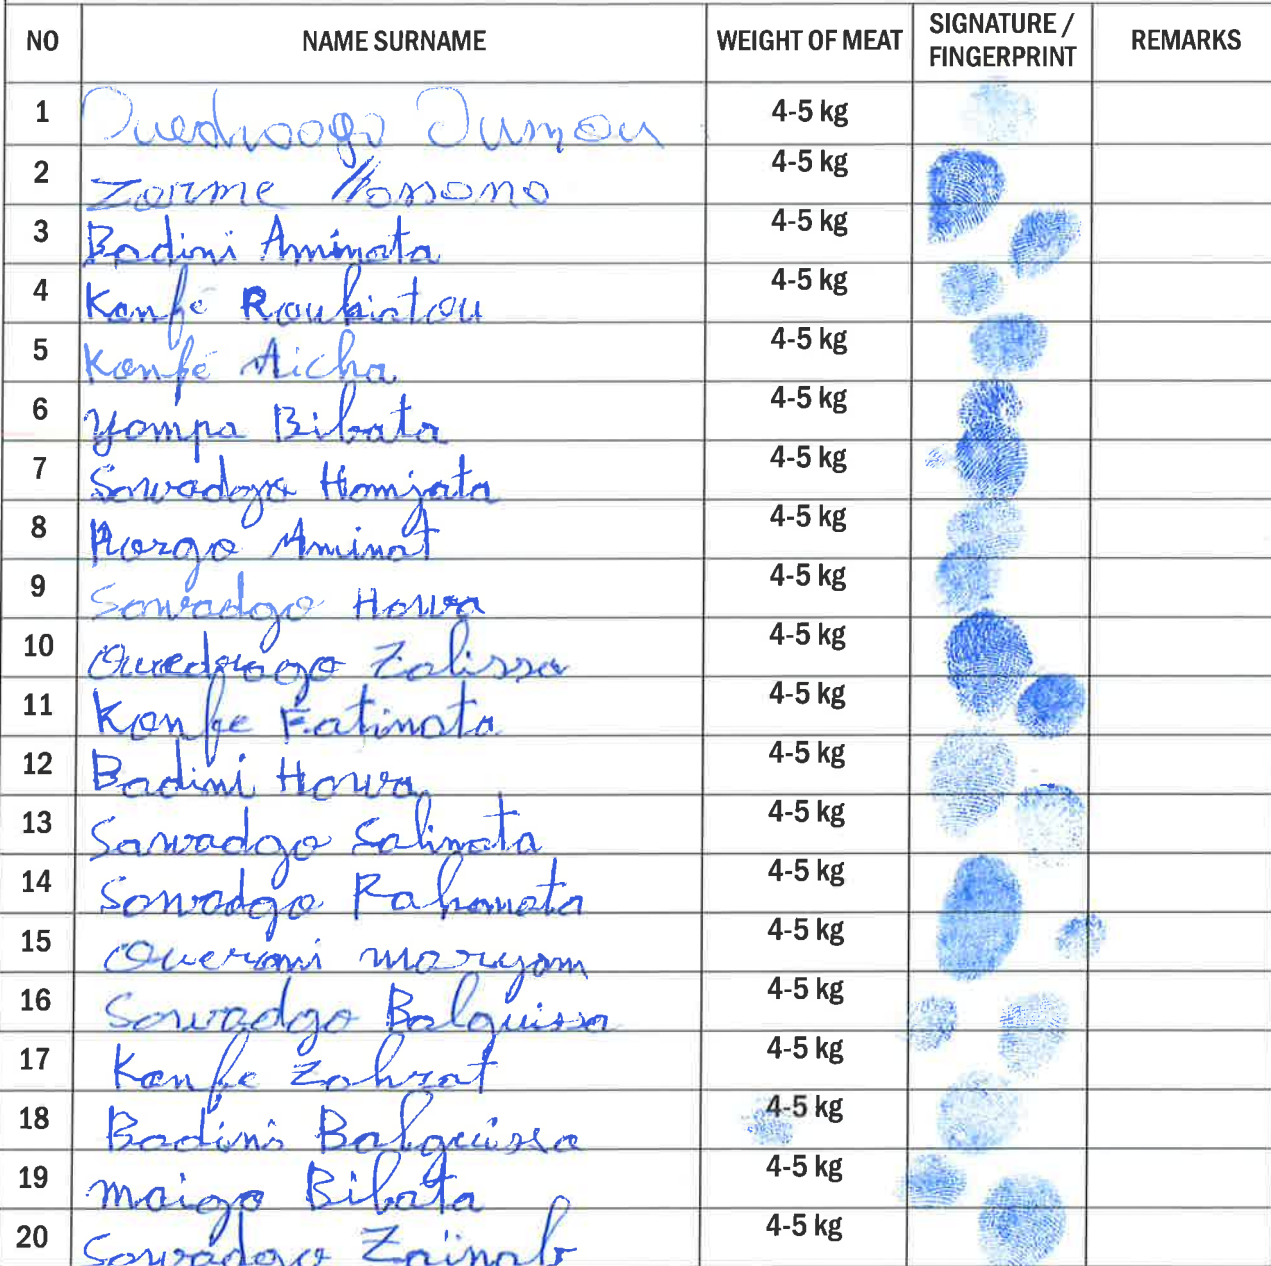 NO NAME SURNAME WEIGHT OF MEAT SIGNATURE / FINGERPRINT REMARKS
1 Ouedraogo Oumou 4-5 kg
2 Zorme 4-5 kg
3 Badini Aminata 4-5 kg
4 Konfé Roukiatou 4-5 kg
5 Konfé Aicha 4-5 kg
6 Yompa Bibata 4-5 kg
7 Sawadogo 4-5 kg
8 Porgo Aminat 4-5 kg
9 Sawadgo Hawa 4-5 kg
10 Ouedraogo Zalissa 4-5 kg
11 Konfe Fatimata 4-5 kg
12 Badini Hawa 4-5 kg
13 Sawadgo Salimata 4-5 kg
14 Sawadgo Rahamata 4-5 kg
15 maryam 4-5 kg
16 Sawadgo Balguissa 4-5 kg
17 Konfe Zohrat 4-5 kg
18 Badini Balguissa 4-5 kg
19 maiga Bibata 4-5 kg
20 Sawadgo Zainab 4-5 kg